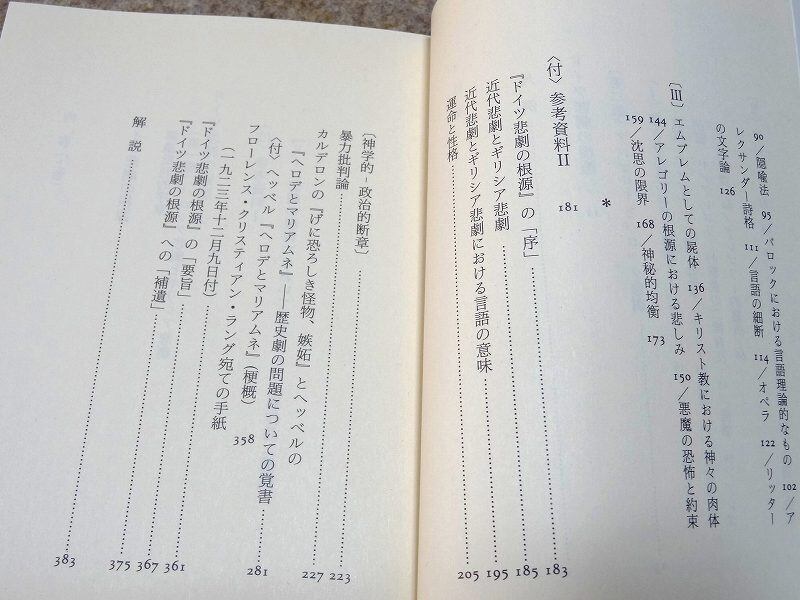 90／隠喩法　95／バロックにおける言語理論的なもの　102／ア
レクサンダー詩格　111／言語の細断　114／オペラ　122／リッター
の文字論　126
〔Ⅲ〕エムブレムとしての屍体　136／キリスト教における神々の肉体
144／アレゴリーの根源における悲しみ　150／悪魔の恐怖と約束
159／沈思の限界　168／神秘的均衡　173
＊
〈付〉参考資料Ⅱ　181
『ドイツ悲劇の根源』の「序」……183
近代悲劇とギリシア悲劇……185
近代悲劇とギリシア悲劇における言語の意味……195
運命と性格……205
〔神学的‐政治的断章〕……223
暴力批判論……227
カルデロンの『げに恐ろしき怪物、嫉妬』とヘッベルの
『ヘロデとマリアムネ』――歴史劇の問題についての覚書……281
〈付〉ヘッベル『ヘロデとマリアムネ』（梗概）　358
フローレンス・クリスティアン・ラング宛ての手紙
（一九二三年十二月九日付）……361
『ドイツ悲劇の根源』の「要旨」……367
『ドイツ悲劇の根源』への「補遺」……375
解説……383